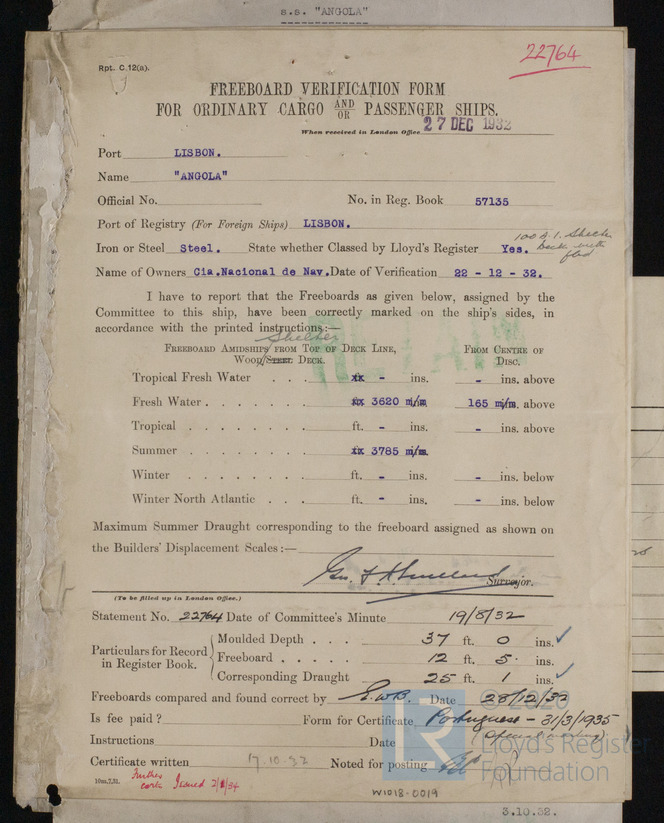 s.s. "ANGOLA"
22764
Rpt. C.12(a).
FREEBOARD VERIFICATION FORM
FOR ORDINARY CARGO AND/OR PASSENGER SHIPS.
When received in London Office 27 DEC 1932
Port LISBON.
Name "ANGOLA"
Official No. No. in Reg. Book 57135
Port of Registry (For Foreign Ships) LISBON.
Iron or Steel Steel. State whether Classed by Lloyd's Register Yes. 100 A.1. Shelter Deck with fbd
Name of Owners Cia.Nacional de Nav. Date of Verification 22 - 12 - 32.
I have to report that the Freeboards as given below, assigned by the
Committee to this ship, have been correctly marked on the ship's sides, in
accordance with the printed instructions:—
Shelter
FREEBOARD AMIDSHIPS FROM TOP OF DECK LINE, FROM CENTRE OF
WOOD/STEEL DECK. DISC.
Tropical Fresh Water . . . xx - ins. - ins. above
Fresh Water . . . . . . . xx 3620 m/m 165 m/m. above
Tropical . . . . . . . . ft. - ins. - ins. above
Summer . . . . . . . . xx 3785 m/m.
Winter . . . . . . . . ft. - ins. - ins. below
Winter North Atlantic . . . ft. - ins. - ins. below
Maximum Summer Draught corresponding to the freeboard assigned as shown on
the Builders' Displacement Scales :—
Surveyor.
(To be filled up in London Office.)
Statement No. 22764 Date of Committee's Minute 19/8/32
Particulars for Record in Register Book.
Moulded Depth . . . 37 ft. 0 ins.
Freeboard . . . . . 12 ft. 5 ins.
Corresponding Draught 25 ft. 1 ins.
Freeboards compared and found correct by E.W.B. Date 28/12/32
Is fee paid ? Form for Certificate Portuguese - 31/3/1935
Instructions Date
Certificate written 17.10.32 Noted for posting
10m,7,31. Further certs Issued
W1018-0019
© 2020
LR
Lloyd's Register
Foundation
3.10.32.